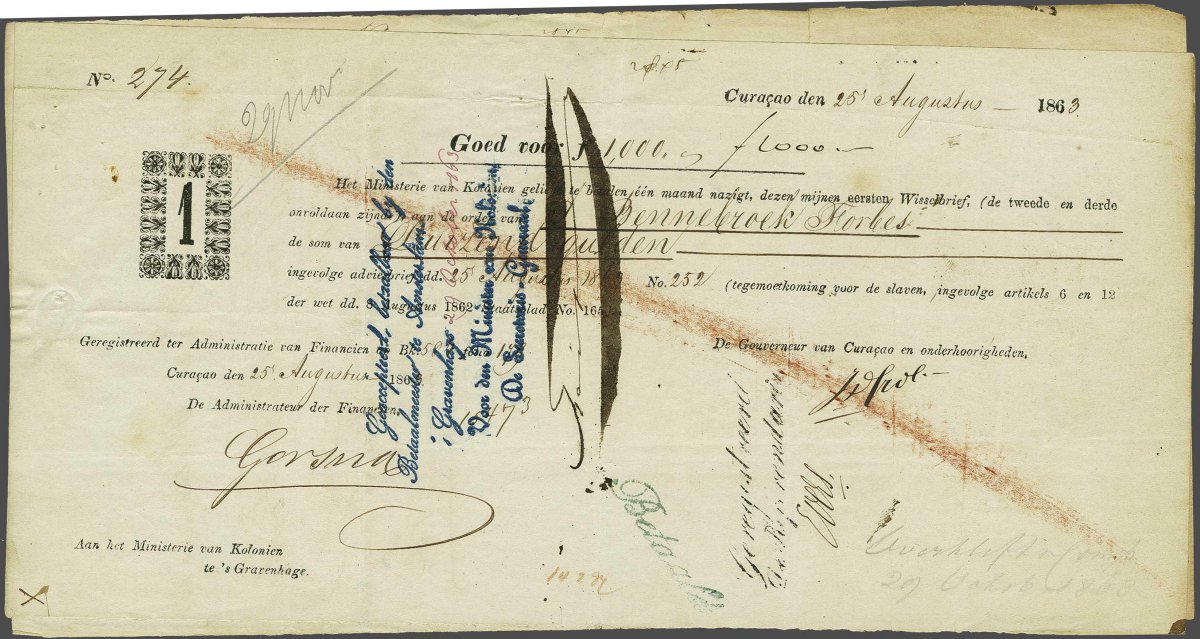 No. 274.
29 Nov.
Curaçao den 25 Augustus 1863
Goed voor f 1,000. f 1000.-
1
Het Ministerie van Kolonien gelieve te betalen één maand nazigt, dezen mijnen eersten Wisselbrief, (de tweede en derde
onvoldaan zijnde) aan de order van Bennebroek Forbes
de som van Duizend Gulden
ingevolge adviesbrief dd. 25 Augustus 1863 No. 252 (tegemoetkoming voor de slaven, ingevolge artikels 6 en 12
der wet dd. Augustus 1862 Staatsblad No. 165).
Geregistreerd ter Administratie van Financien
De Gouverneur van Curaçao en onderhoorigheden,
Curaçao den 25 Augustus 1863
De Administrateur der Financien,
Gorsira
Aan het Ministerie van Kolonien
te 's Gravenhage.
Geaccepteerd, betaalbaar bij den
Betaalmeester te Amsterdam
's Gravenhage 29 October 1863
Voor den Minister van Kolonien
De Secretaris-Generaal,
Betaald
Geregistreerd
X